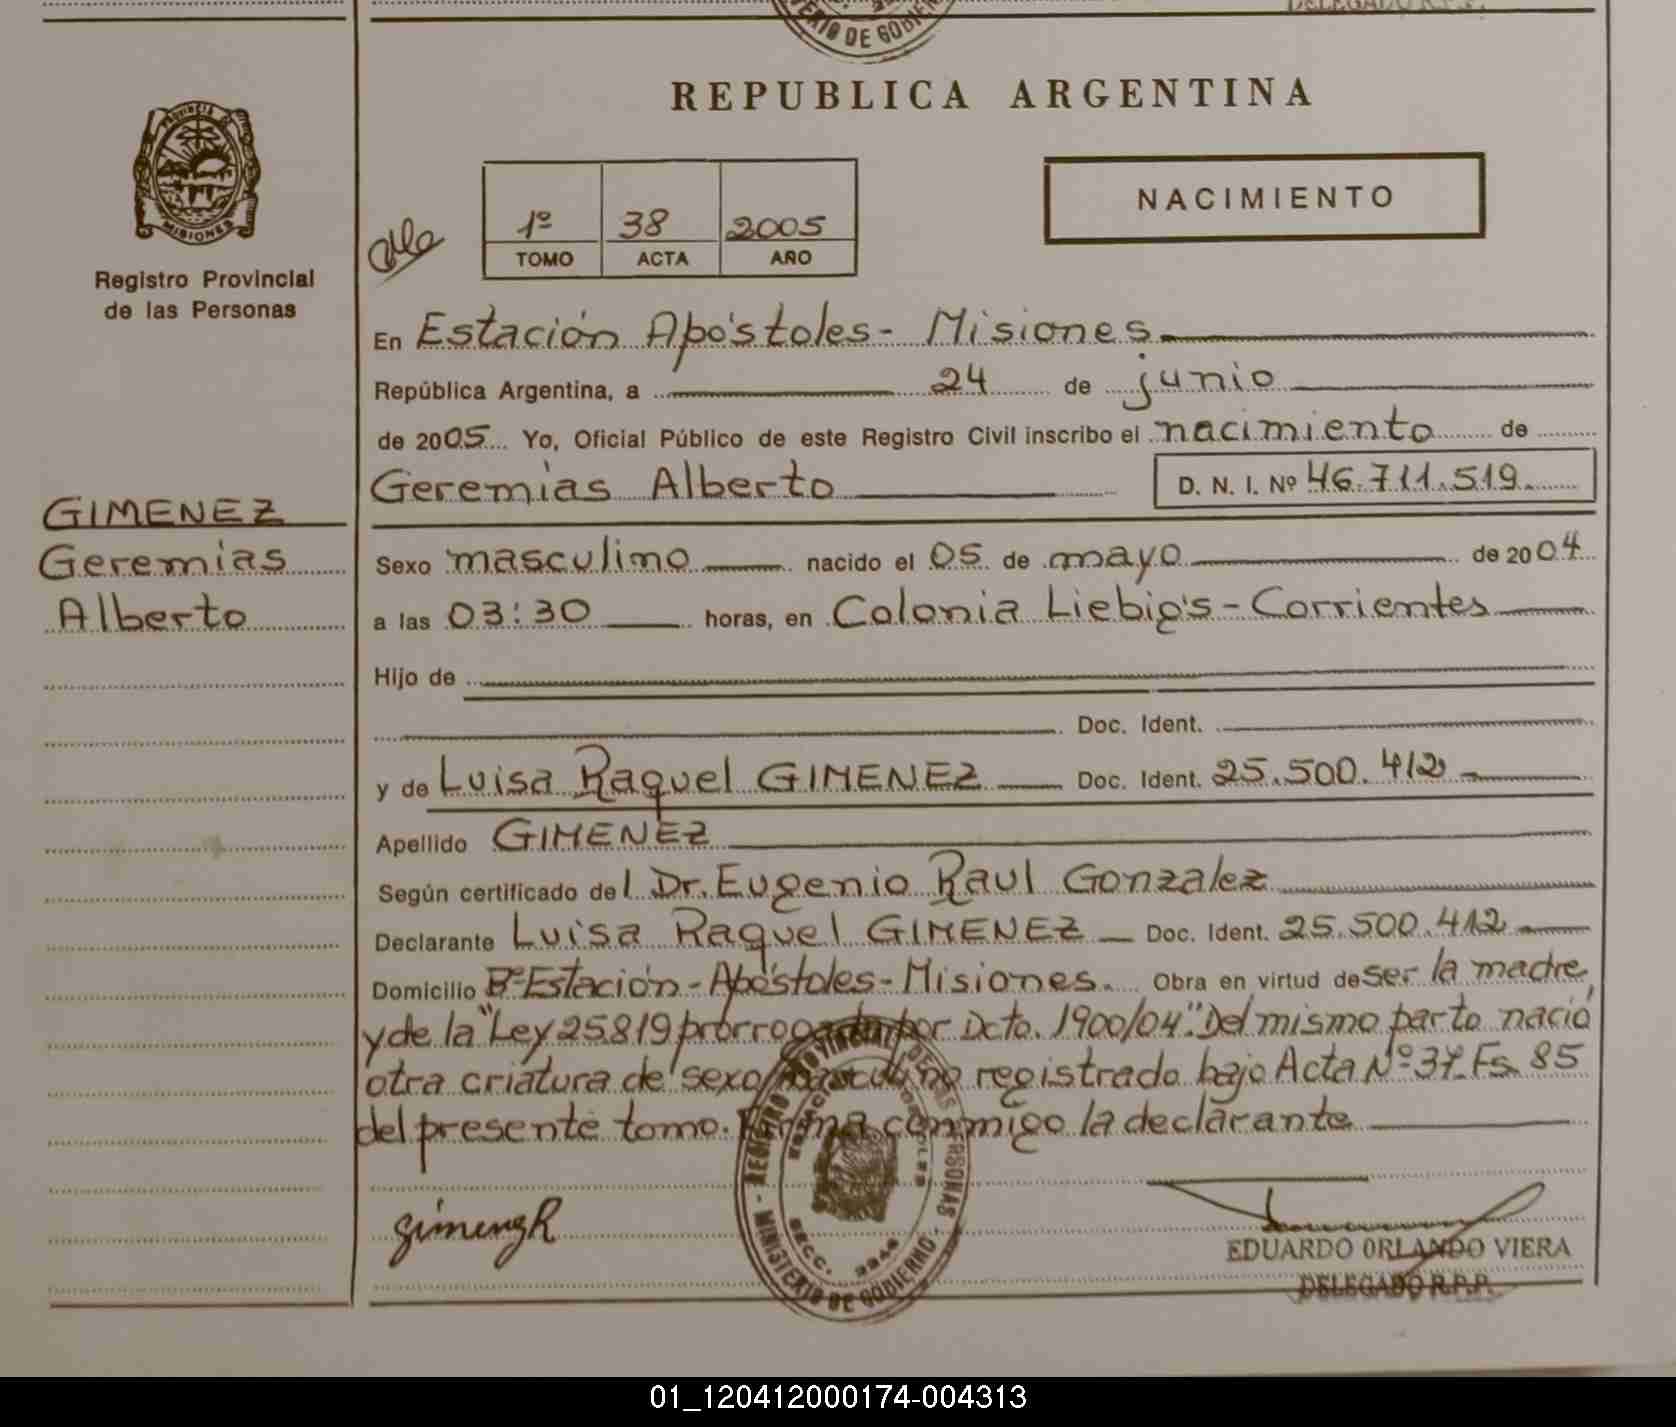 DELEGADO R.P.P.
MINISTERIO DE GOBIERNO
REPUBLICA ARGENTINA
PROVINCIA DE
MISIONES
NACIMIENTO
1º 38 2005
TOMO ACTA AÑO
Registro Provincial
de las Personas
En Estación Apóstoles - Misiones
República Argentina, a 24 de junio
de 2005 Yo, Oficial Público de este Registro Civil inscribo el nacimiento de
Geremias Alberto D. N. I. Nº 46.711.519.
GIMENEZ
Geremias
Alberto
Sexo masculino nacido el 05 de mayo de 2004
a las 03:30 horas, en Colonia Liebig's - Corrientes
Hijo de
Doc. Ident.
y de Luisa Raquel GIMENEZ Doc. Ident. 25.500.412
Apellido GIMENEZ
Según certificado del Dr. Eugenio Raul Gonzalez
Declarante Luisa Raquel GIMENEZ Doc. Ident. 25.500.412
Domicilio Bº Estación - Apóstoles - Misiones. Obra en virtud de ser la madre
y de la "Ley 25819 prorrogada por Dcto. 1900/04". Del mismo parto nació
otra criatura de sexo masculino registrado bajo Acta Nº 37 Fs 85
del presente tomo. Firma conmigo la declarante
REGISTRO PROVINCIAL DE LAS PERSONAS
MINISTERIO DE GOBIERNO
SECC.
EDUARDO ORLANDO VIERA
DELEGADO R.P.P.
01_120412000174-004313